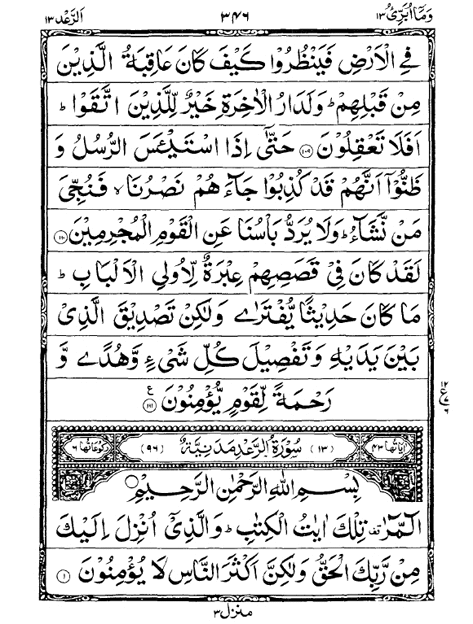 وَمَآ اُبَرِّئُ ١٣ ٣٤٦ اَلرَّعْد ١٣
فِي الْاَرْضِ فَيَنْظُرُوْا كَيْفَ كَانَ عَاقِبَةُ الَّذِيْنَ
مِنْ قَبْلِهِمْ ؕ وَلَدَارُ الْاٰخِرَةِ خَيْرٌ لِّلَّذِيْنَ اتَّقَوْا ؕ
اَفَلَا تَعْقِلُوْنَ ﴿١٠٩﴾ حَتّٰٓى اِذَا اسْتَيْـَٔسَ الرُّسُلُ وَ
ظَنُّوْٓا اَنَّهُمْ قَدْ كُذِبُوْا جَآءَهُمْ نَصْرُنَا ۙ فَنُجِّيَ
مَنْ نَّشَآءُ ؕ وَلَا يُرَدُّ بَاْسُنَا عَنِ الْقَوْمِ الْمُجْرِمِيْنَ ﴿١١٠﴾
لَقَدْ كَانَ فِيْ قَصَصِهِمْ عِبْرَةٌ لِّاُولِي الْاَلْبَابِ ؕ
مَا كَانَ حَدِيْثًا يُّفْتَرٰى وَلٰكِنْ تَصْدِيْقَ الَّذِيْ
بَيْنَ يَدَيْهِ وَتَفْصِيْلَ كُلِّ شَيْءٍ وَّهُدًى وَّ
رَحْمَةً لِّقَوْمٍ يُّؤْمِنُوْنَ ﴿١١١﴾ ع
١٢ ع ٦
اٰيَاتُهَا ٤٣ (١٣) سُوْرَةُ الرَّعْدِ مَدَنِيَّةٌ (٩٦) رُكُوْعَاتُهَا ٦
بِسْمِ اللّٰهِ الرَّحْمٰنِ الرَّحِيْمِ
الٓمّٓرٰ ۫ تِلْكَ اٰيٰتُ الْكِتٰبِ ؕ وَالَّذِيْٓ اُنْزِلَ اِلَيْكَ
مِنْ رَّبِّكَ الْحَقُّ وَلٰكِنَّ اَكْثَرَ النَّاسِ لَا يُؤْمِنُوْنَ ﴿١﴾
منزل ٣